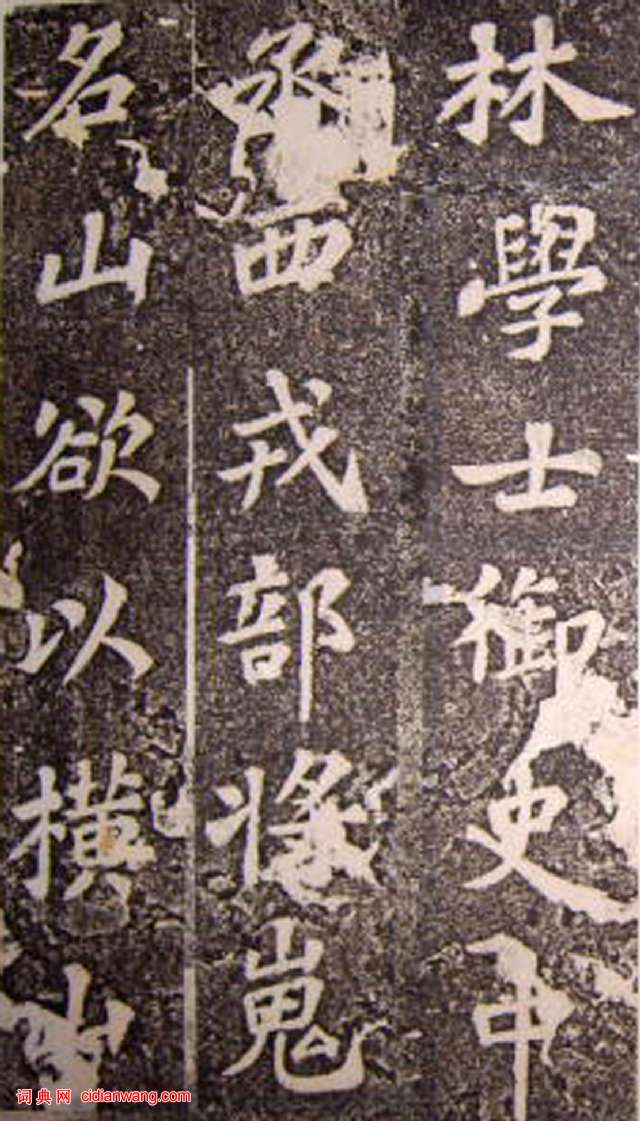 林學士御史中
丞西戎部將嵬
名山欲以橫山
词典网 cidianwang.com